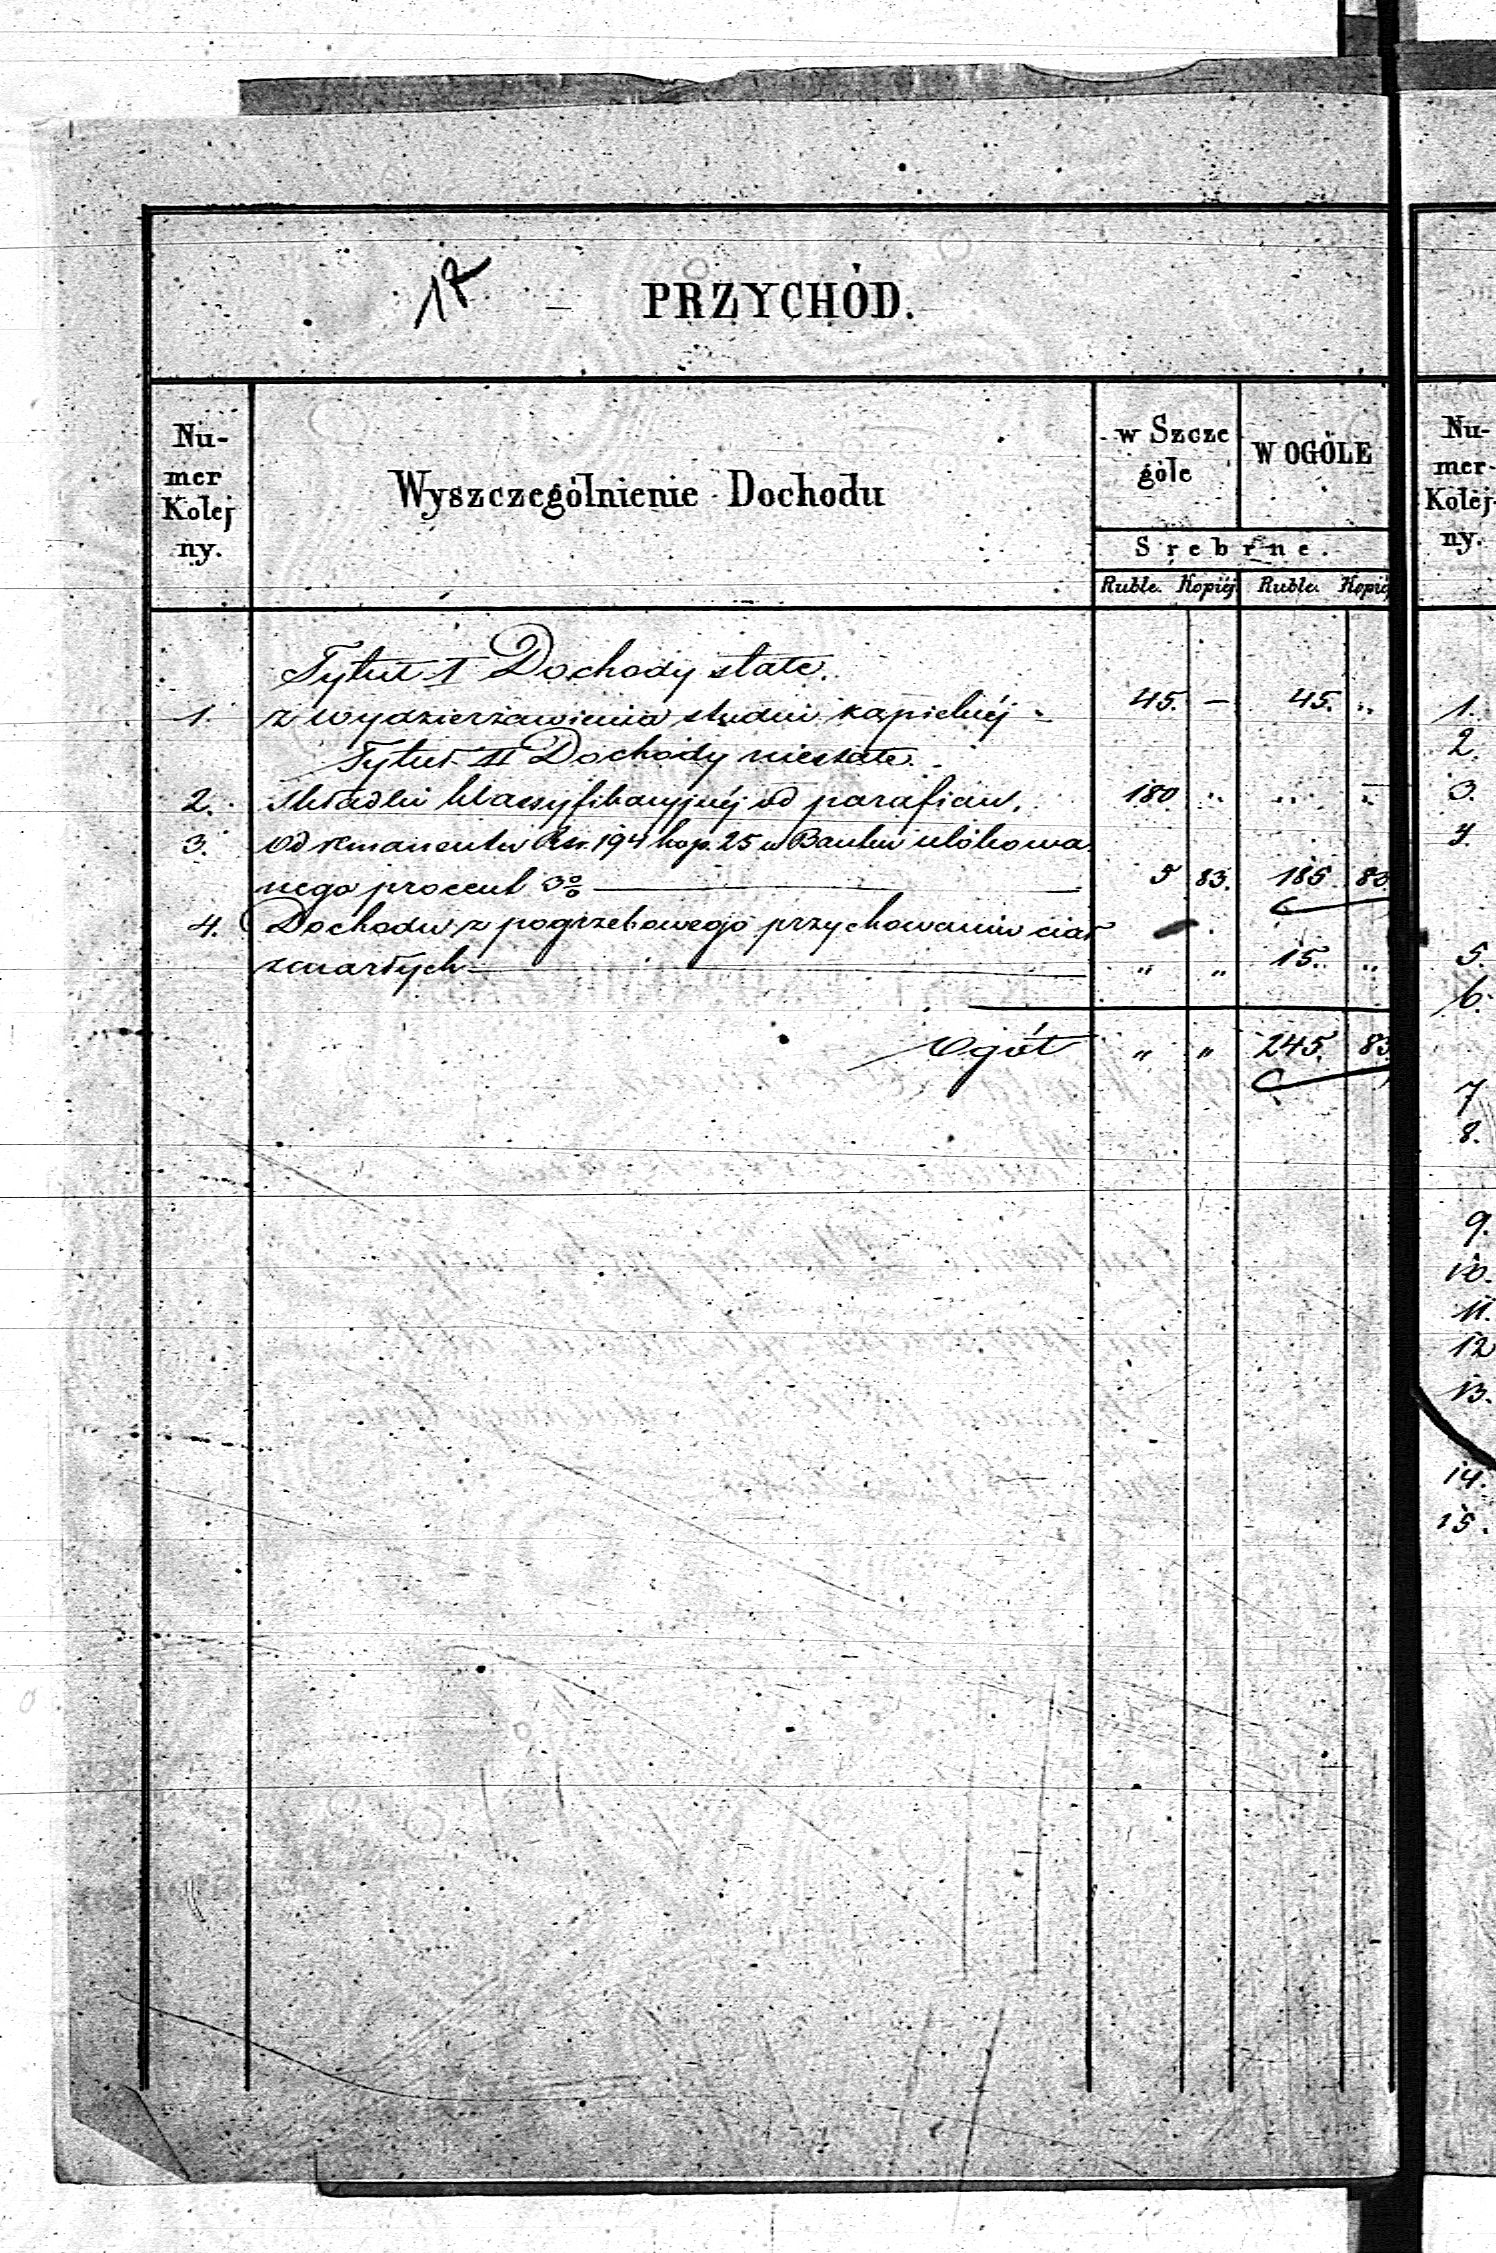 17
PRZYCHÓD.
Nu-
mer
Kolej
ny.
Wyszczególnienie Dochodu
w Szcze
góle
W OGÓLE
Srebrne.
Ruble. Kopiéj. Ruble. Kopiéj
Tytuł I Dochody stałe.
1. z wydzierżawienia studni kąpielnéj - 45. — 45. „
Tytuł II Dochody niestałe.
2. Składki klassyfikacyjnéj od parafian. 180 „ „ „
3. Od remanentu Rsr. 194 kop. 25 w Banku ulokowa
nego procent 3% 5 83. 185 83
4. Dochodu z pogrzebowego przychowaniu ciał
zmarłych „ „ 15. „
Ogół „ „ 245. 83
Nu-
mer-
Kolej-
ny.
1.
2.
3.
4.
5.
6.
7
8.
9.
10.
11.
12
13.
14.
15.